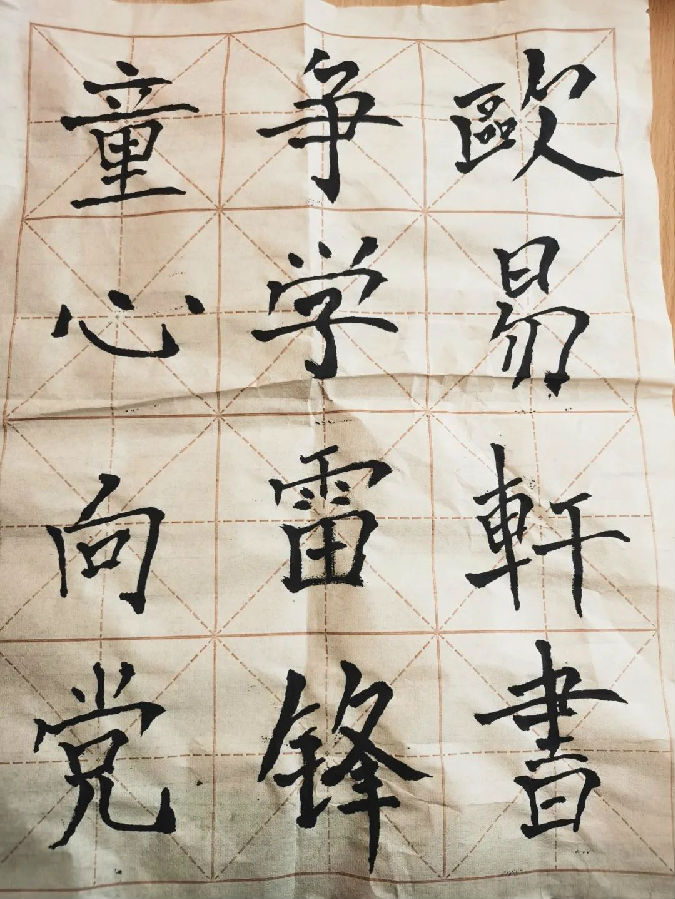 童心向党
争学雷锋
歐易軒書